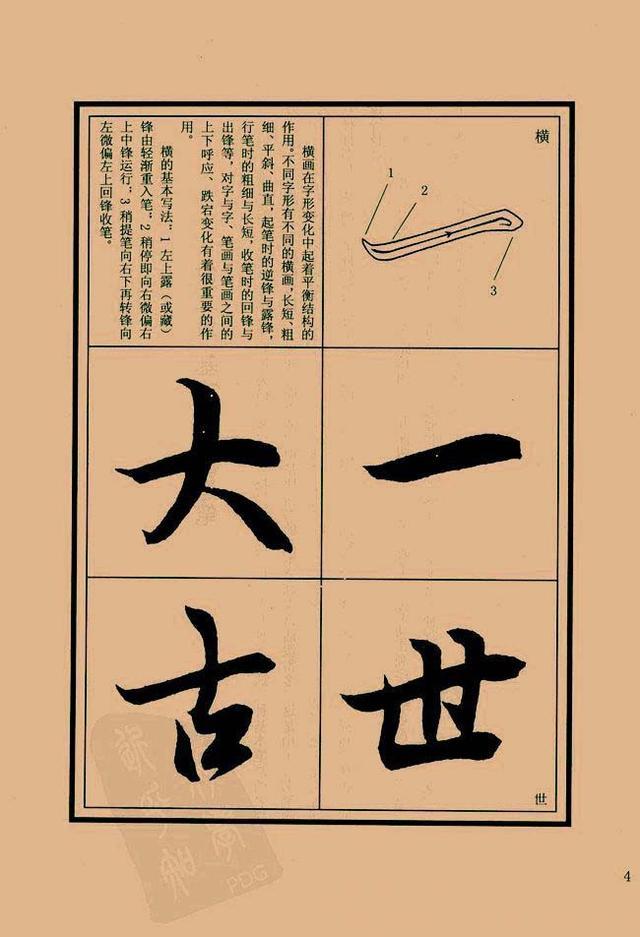 横
1
2
3
横画在字形变化中起着平衡结构的
作用。不同字形有不同的横画,长短、粗
细、平斜、曲直,起笔时的逆锋与露锋,
行笔时的粗细与长短,收笔时的回锋与
出锋等,对字与字、笔画与笔画之间的
上下呼应、跌宕变化有着很重要的作
用。
横的基本写法:1 左上露(或藏)
锋由轻渐重入笔;2 稍停即向右微偏右
上中锋运行;3 稍提笔向右下再转锋向
左微偏左上回锋收笔。
一
大
世
世
古
PDG
4